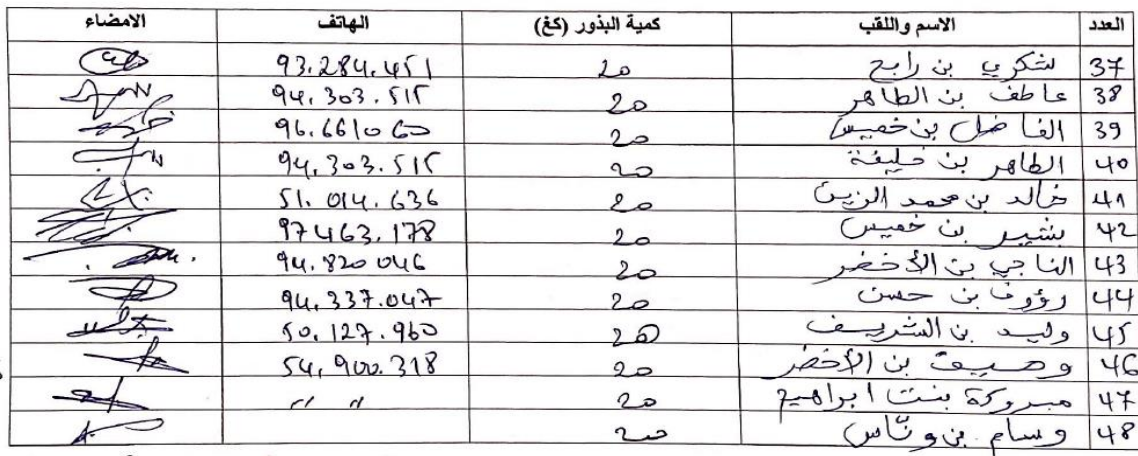 العدد الاسم واللقب كمية البذور (كغ) الهاتف الامضاء
37 شكري بن رابح 20 93.284.451
38 عاطف بن الطاهر 20 94.303.515
39 الفاضل بن خميس 20 96.661060
40 الطاهر بن خليفة 20 94.303.515
41 خالد بن محمد الزين 20 51.014.636
42 بشير بن خميس 20 97463.178
43 الناجي بن الأخضر 20 94.820046
44 رؤوف بن حسن 20 94.337.047
45 وليد بن الشريف 20 50.127.960
46 بن الأخضر 20 54.900.318
47 مبروكة بنت ابراهيم 20 " "
48 وسام بن ونّاس 20